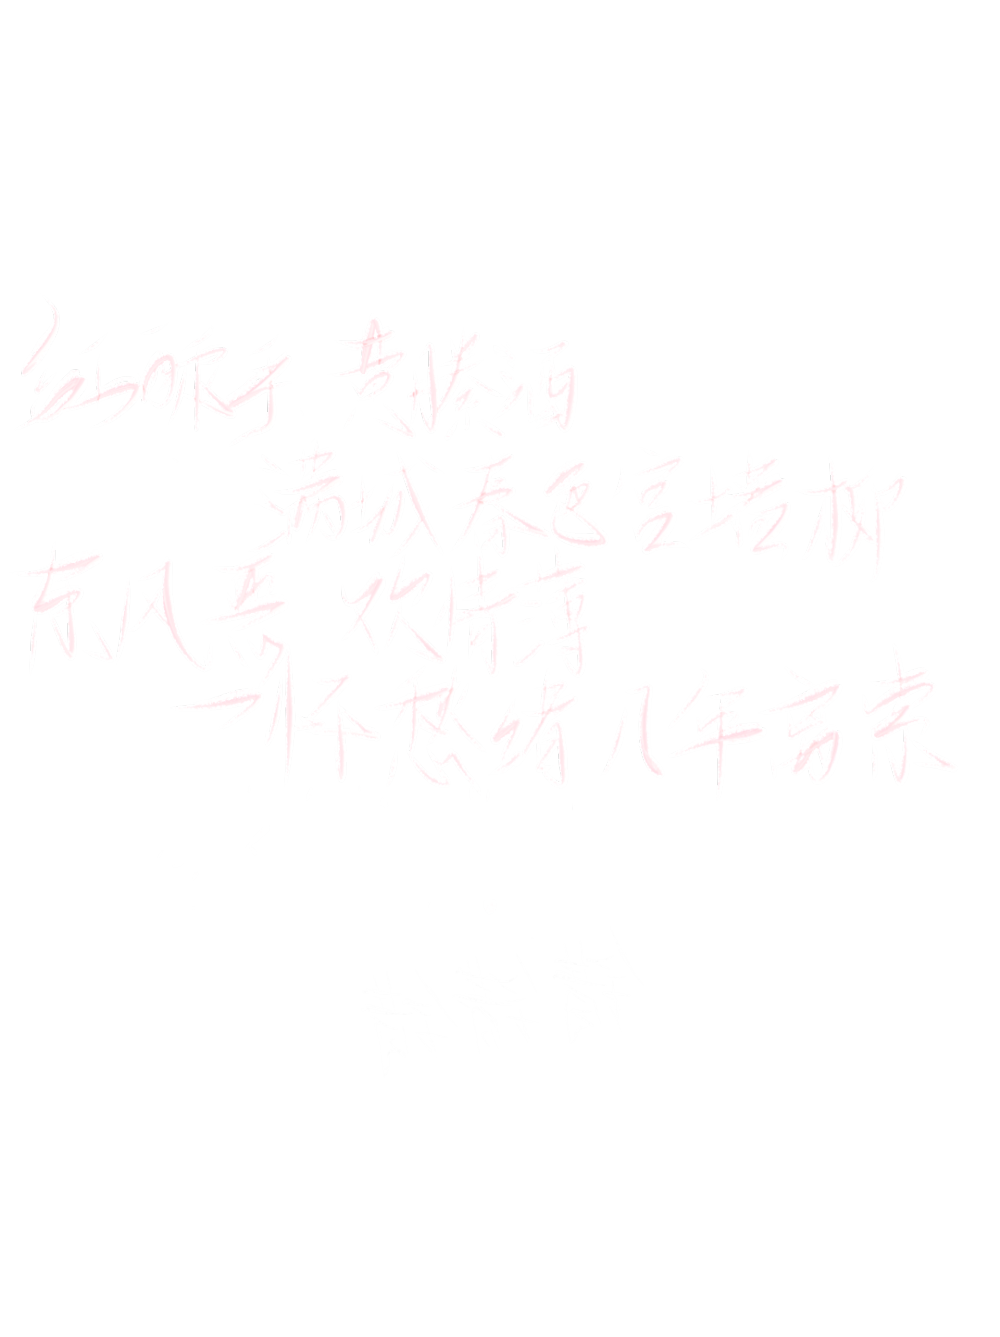 红酥手 黄滕酒
满城春色宫墙柳
东风恶 欢情薄
一怀愁绪 几年离索